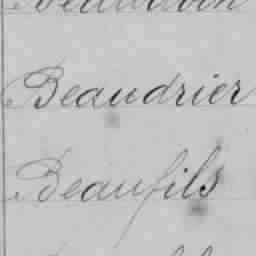 Beaudrier
Beaufils